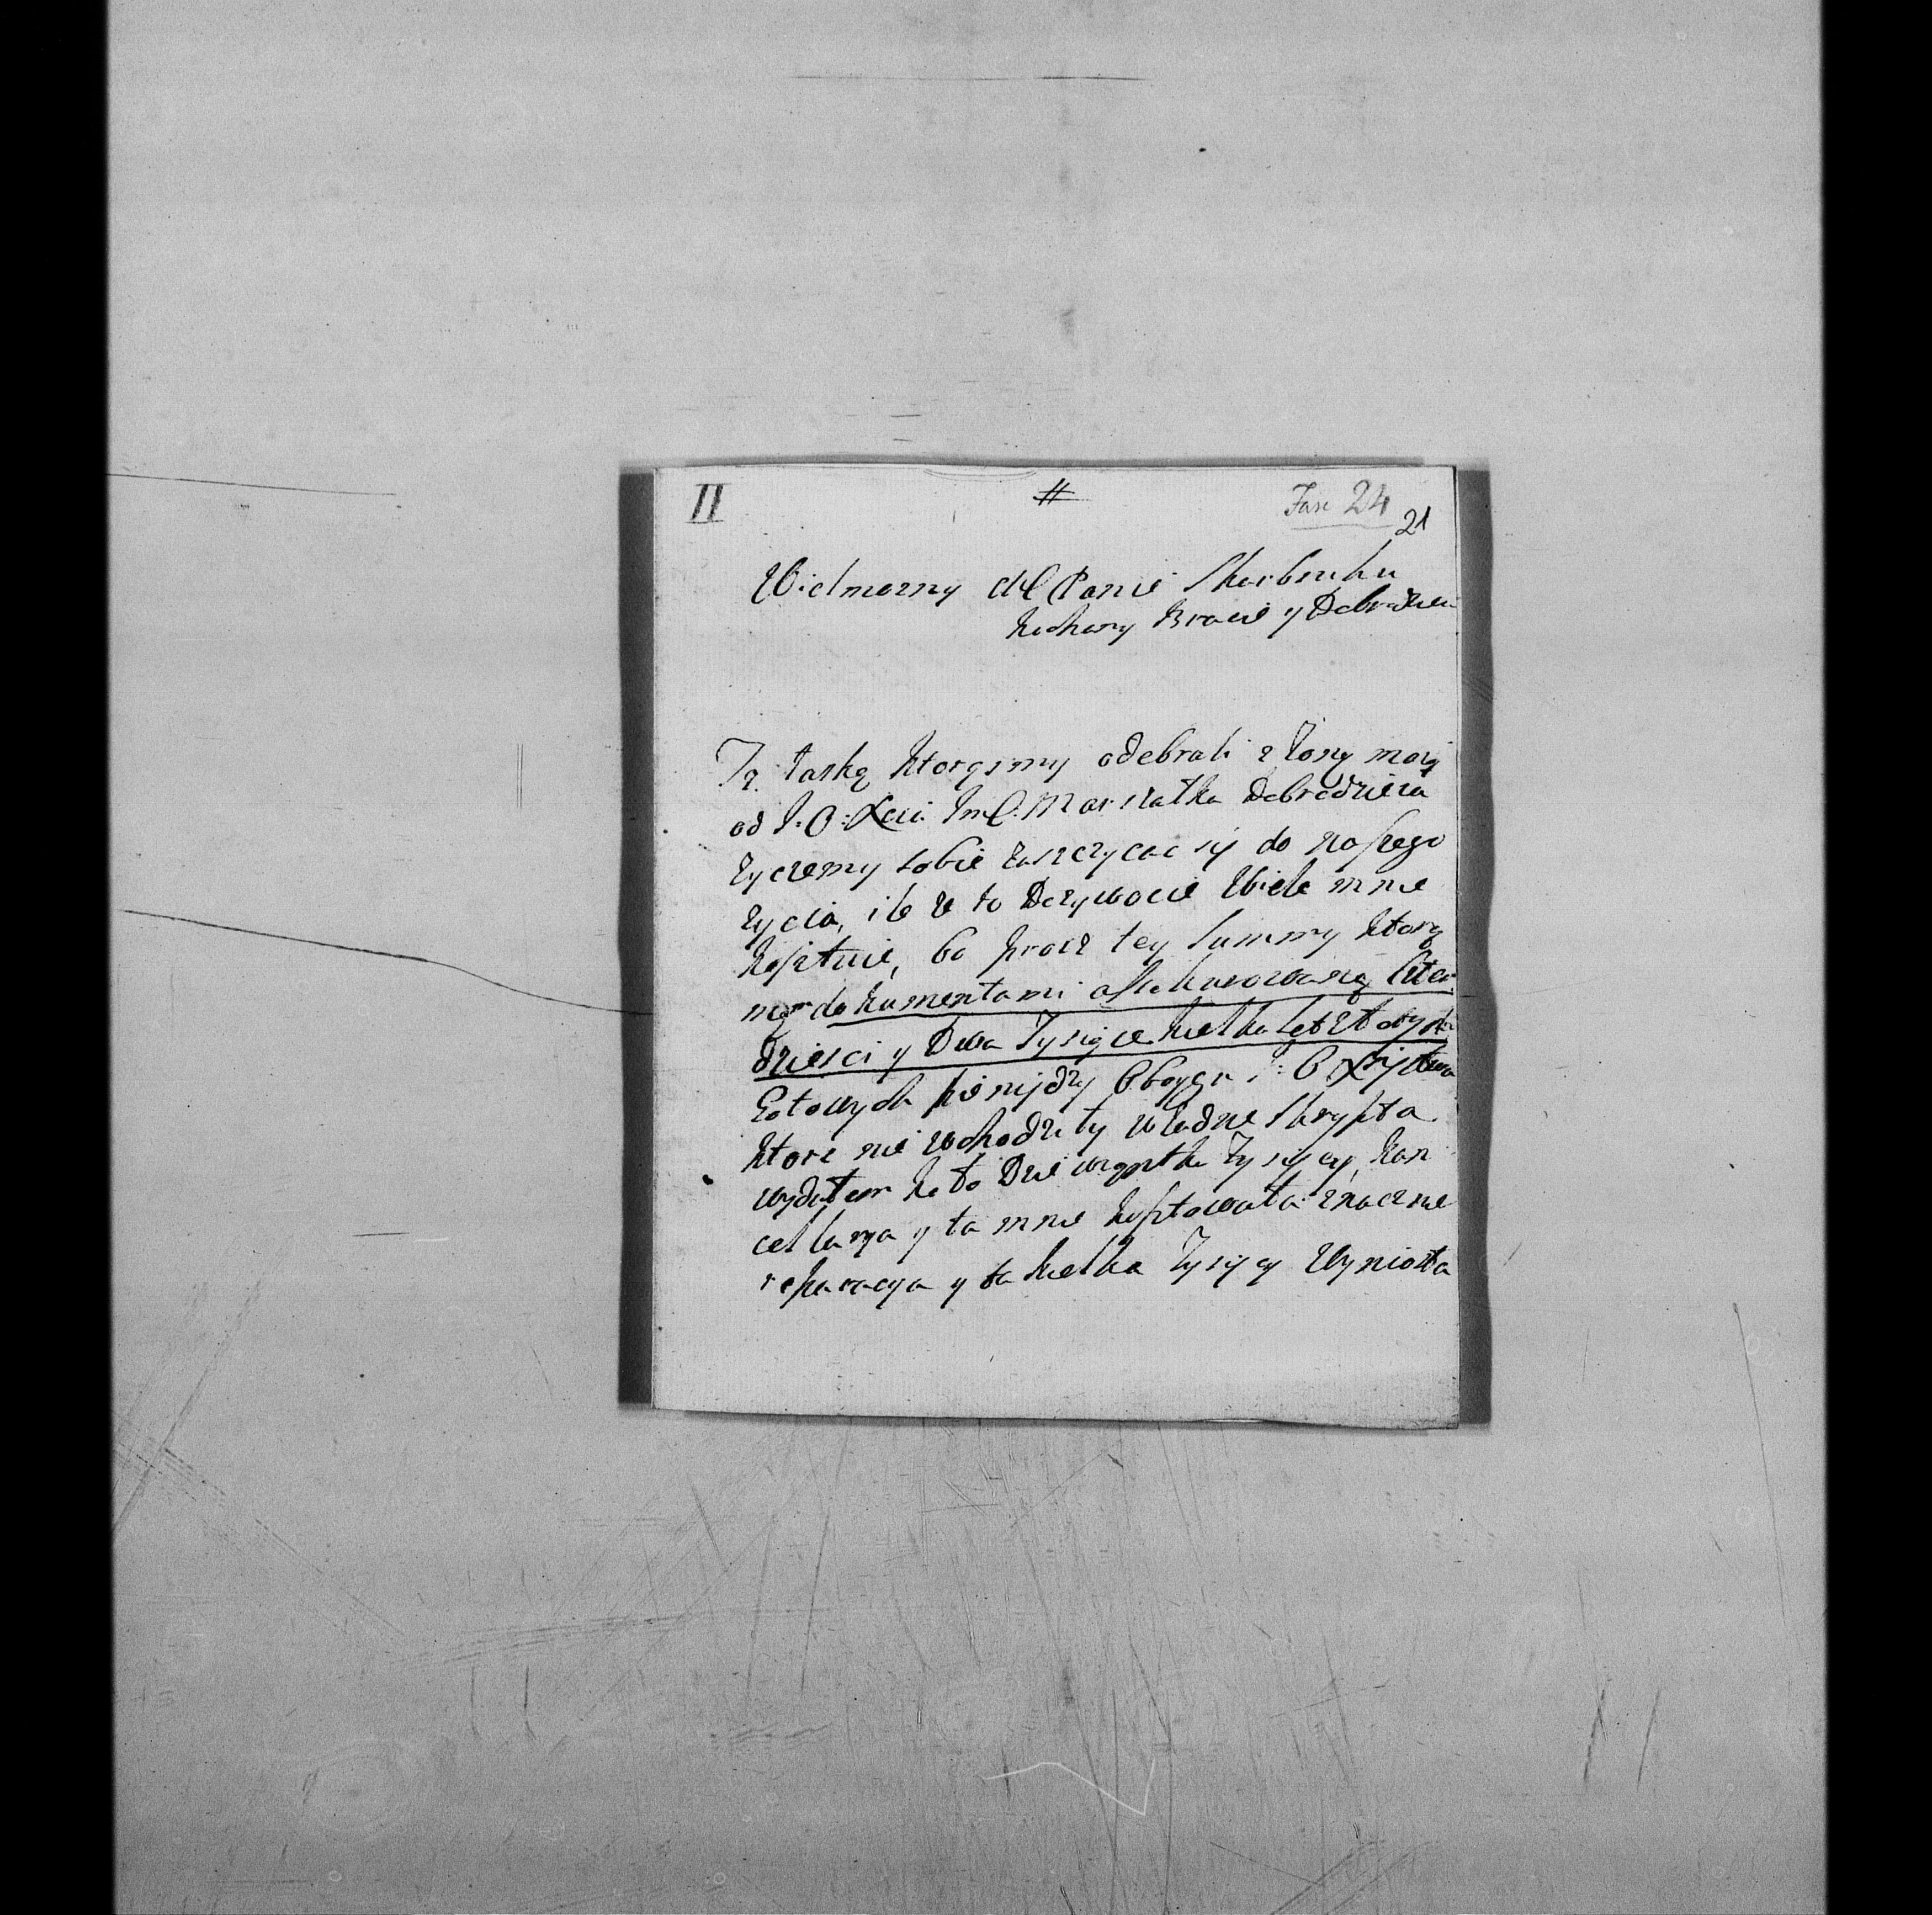 II # Fasc 24
21
Wielmozny Mć Panie Skarbniku
kochany Bracie y Dobrodzieiu
Tą łaskę ktorąsmy odebrali z żoną moią
od J: O: Xcia JmC. Marszałka Dobrodzieia
zyczemy sobie zaszczycac się do naszego
zycia, ile ze to Dozywocie Wiele mnie
kosztuie, bo procz tey Summy ktorą
mąm dokumentami assekurowaną Czter
dziesci y Dwa Tysiące kielka set złotych
Gotowych pieniędzy Oboygu J: O Xięstwu
ktore nie wchodzi ty w żadne Skrypta
wydałem ko to Dziewiątka Tysięcy, kan
cellarya y ta mnie kosztowała znaczne
reparacya y ta kielka Tysięcy Wyniosła